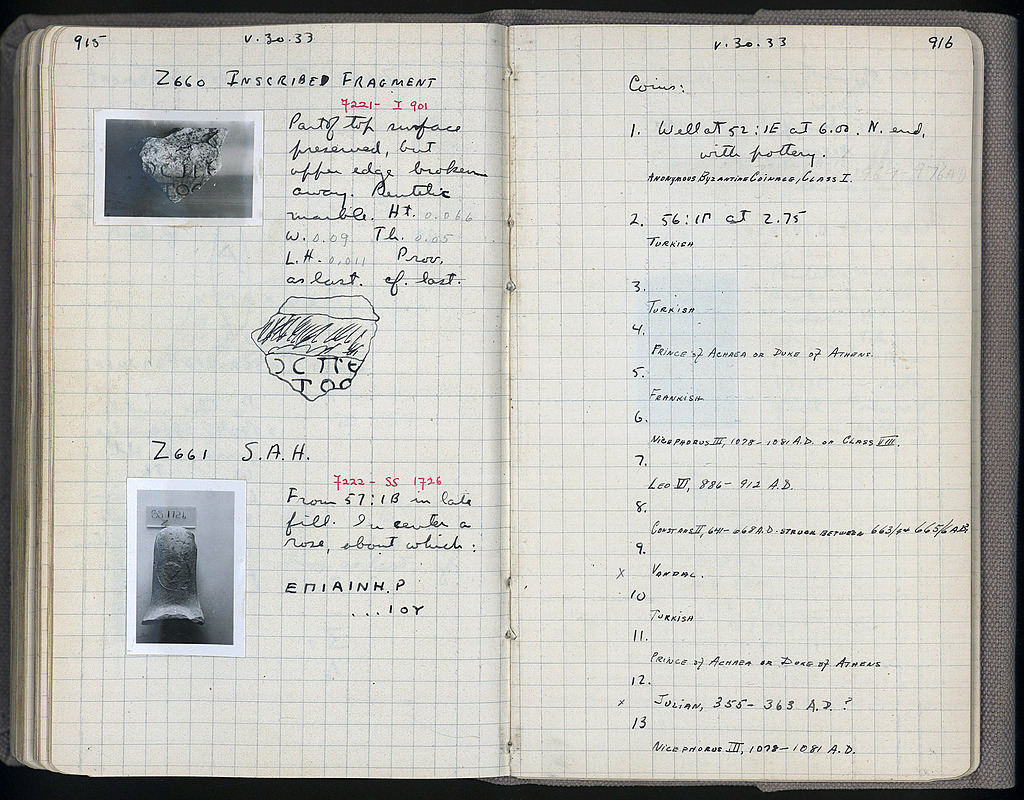 915
V.30.33
Z660 INSCRIBED FRAGMENT
7221- I 901
Part of top surface
preserved, but
upper edge broken
away. Pentelic
marble. Ht. 0.066
W. 0.09 Th. 0.05
L.H. 0.011 Prov.
as last. cf. last.
ϽC ΠΕ
ΤΟC
Z661 S.A.H.
7222 - SS 1726
SS 1726
From 57:1B in late
fill. In center a
rose, about which:
ΕΠΙΑΙΝΗ.Ρ
...ΙΟΥ
V.30.33
916
Coins:
1. Well at 52:1E at 6.00. N. end,
with pottery.
ANONYMOUS BYZANTINE COINAGE, CLASS I.
2. 56:1Γ at 2.75
TURKISH
3.
TURKISH
4.
PRINCE of ACHAEA OR DUKE of ATHENS.
5.
FRANKISH
6.
NICEPHORUS III, 1078-1081 A.D. OR CLASS VIII.
7.
LEO VI, 886-912 A.D.
8.
CONSTANS II, 641-668 A.D. STRUCK BETWEEN 663/4 & 665/6 A.D.?
9.
x VANDAL.
10
TURKISH
11.
PRINCE of ACHAEA OR DUKE of ATHENS
12.
x JULIAN, 355-363 A.D.?
13
NICEPHORUS III, 1078-1081 A.D.